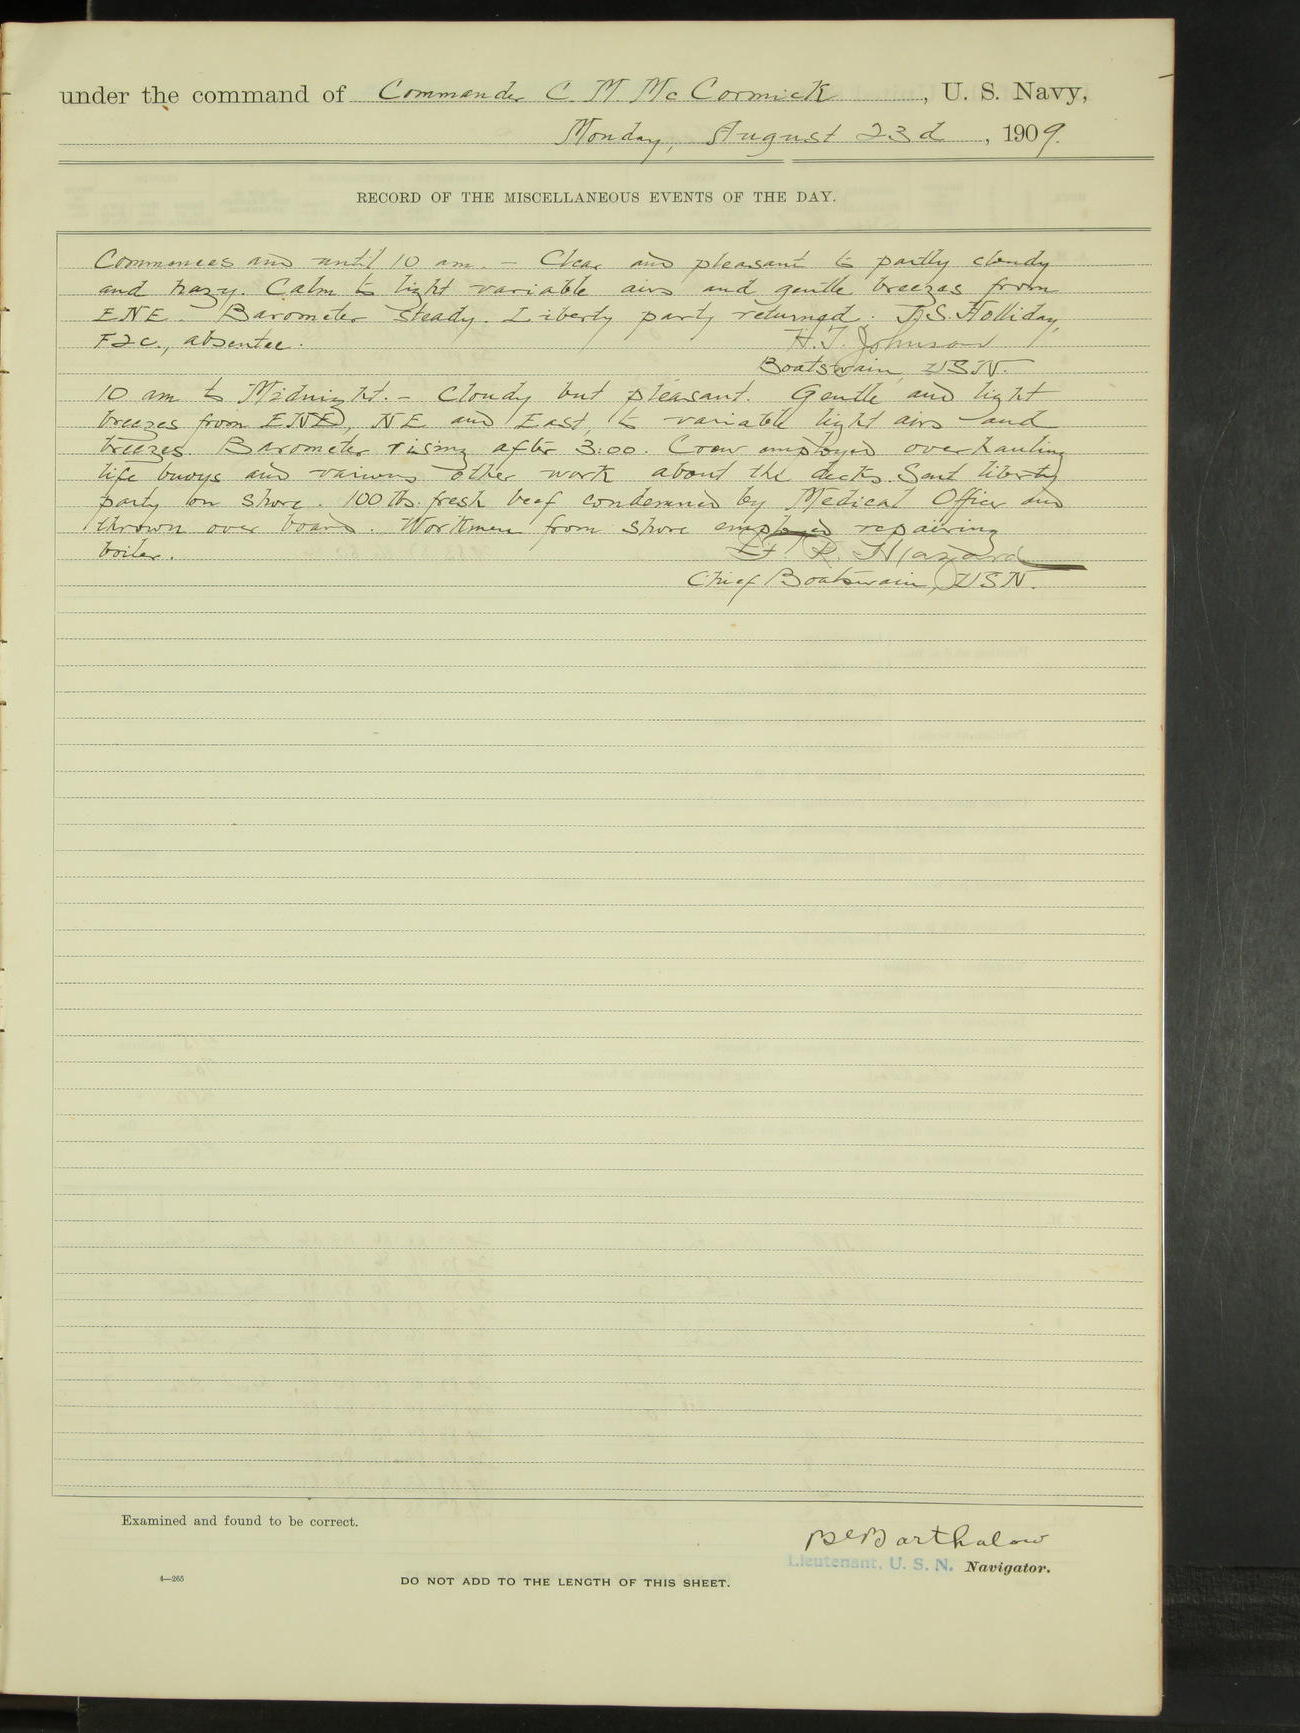 under the command of Commander C. M McCormick, U. S. Navy,
Monday, August 23d, 1909.
RECORD OF THE MISCELLANEOUS EVENTS OF THE DAY.
Commences and until 10 am. – Clear and pleasant to partly cloudy
and hazy. Calm to light variable airs and gentle breezes from
ENE. Barometer steady. Liberty party returned. J.S. Holliday,
F2c., absentee. H. J. Johnson
Boatswain, USN.
10 am to Midnight. – Cloudy but pleasant. Gentle and light
breezes from ENE, NE and East, to variable light airs and
breezes. Barometer rising after 3:00. Crew employed overhauling
life buoys and various other work about the decks. Sent liberty
party on shore. 100 lbs. fresh beef condemned by Medical Officer and
thrown over board. Workmen from shore employed repairing
boiler. R. Hazard
Chief Boatswain, USN.
Examined and found to be correct.
B Barthalow
Lieutenant, U. S. N. Navigator.
4—265
DO NOT ADD TO THE LENGTH OF THIS SHEET.